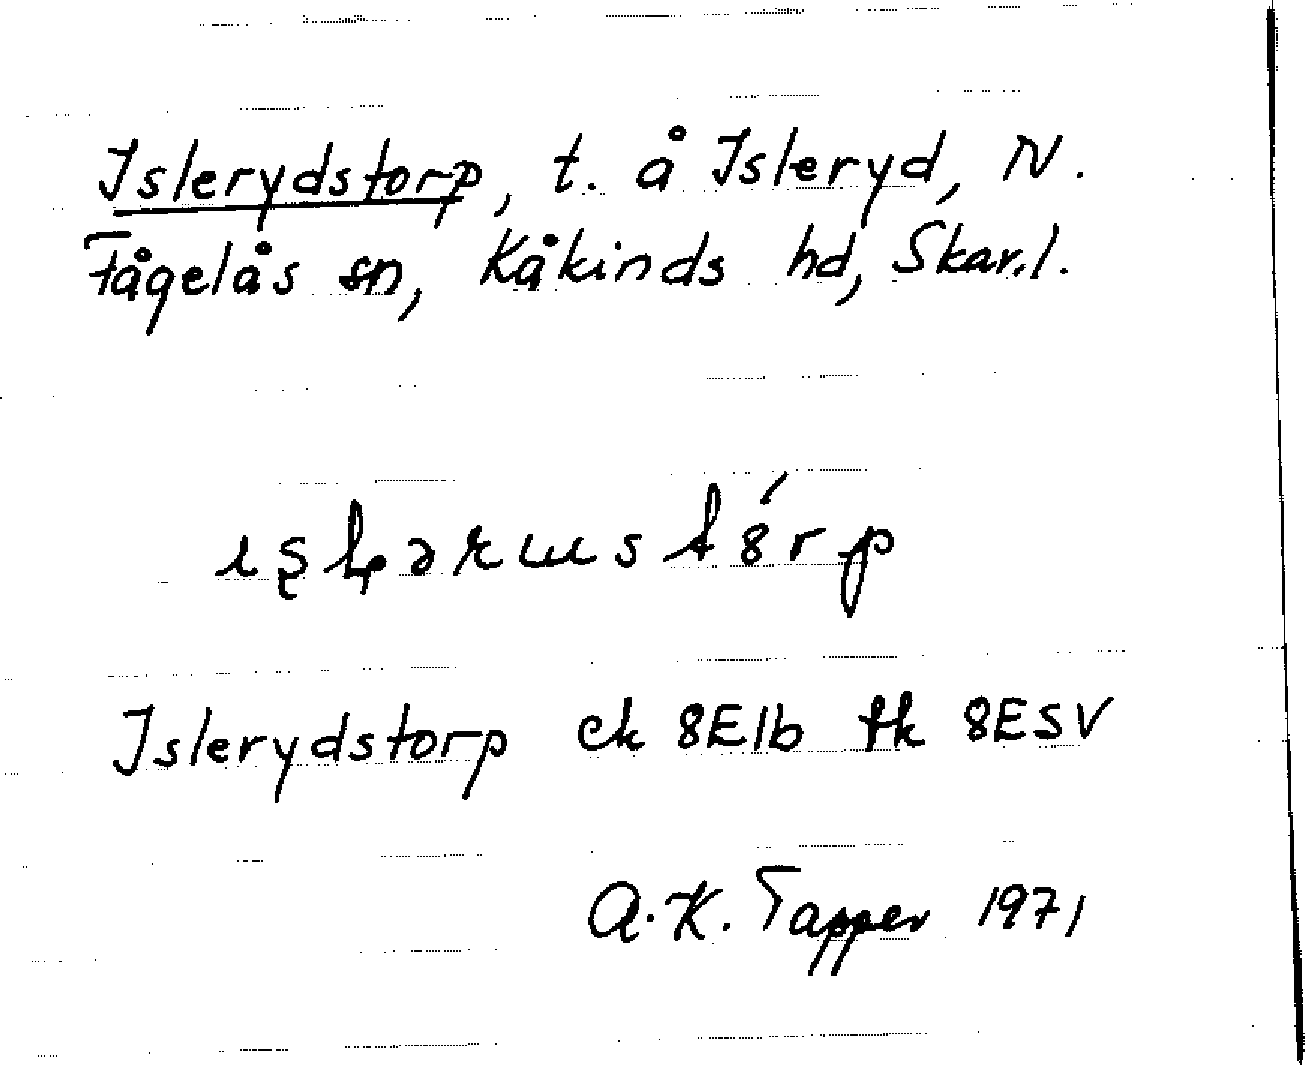 Islerydstorp, t. å Isleryd, N.
Fågelås sn, Kåkinds hd, Skar.l.
Islerydstorp ek 8E1b tk 8ESV
A.K. Tapper 1971